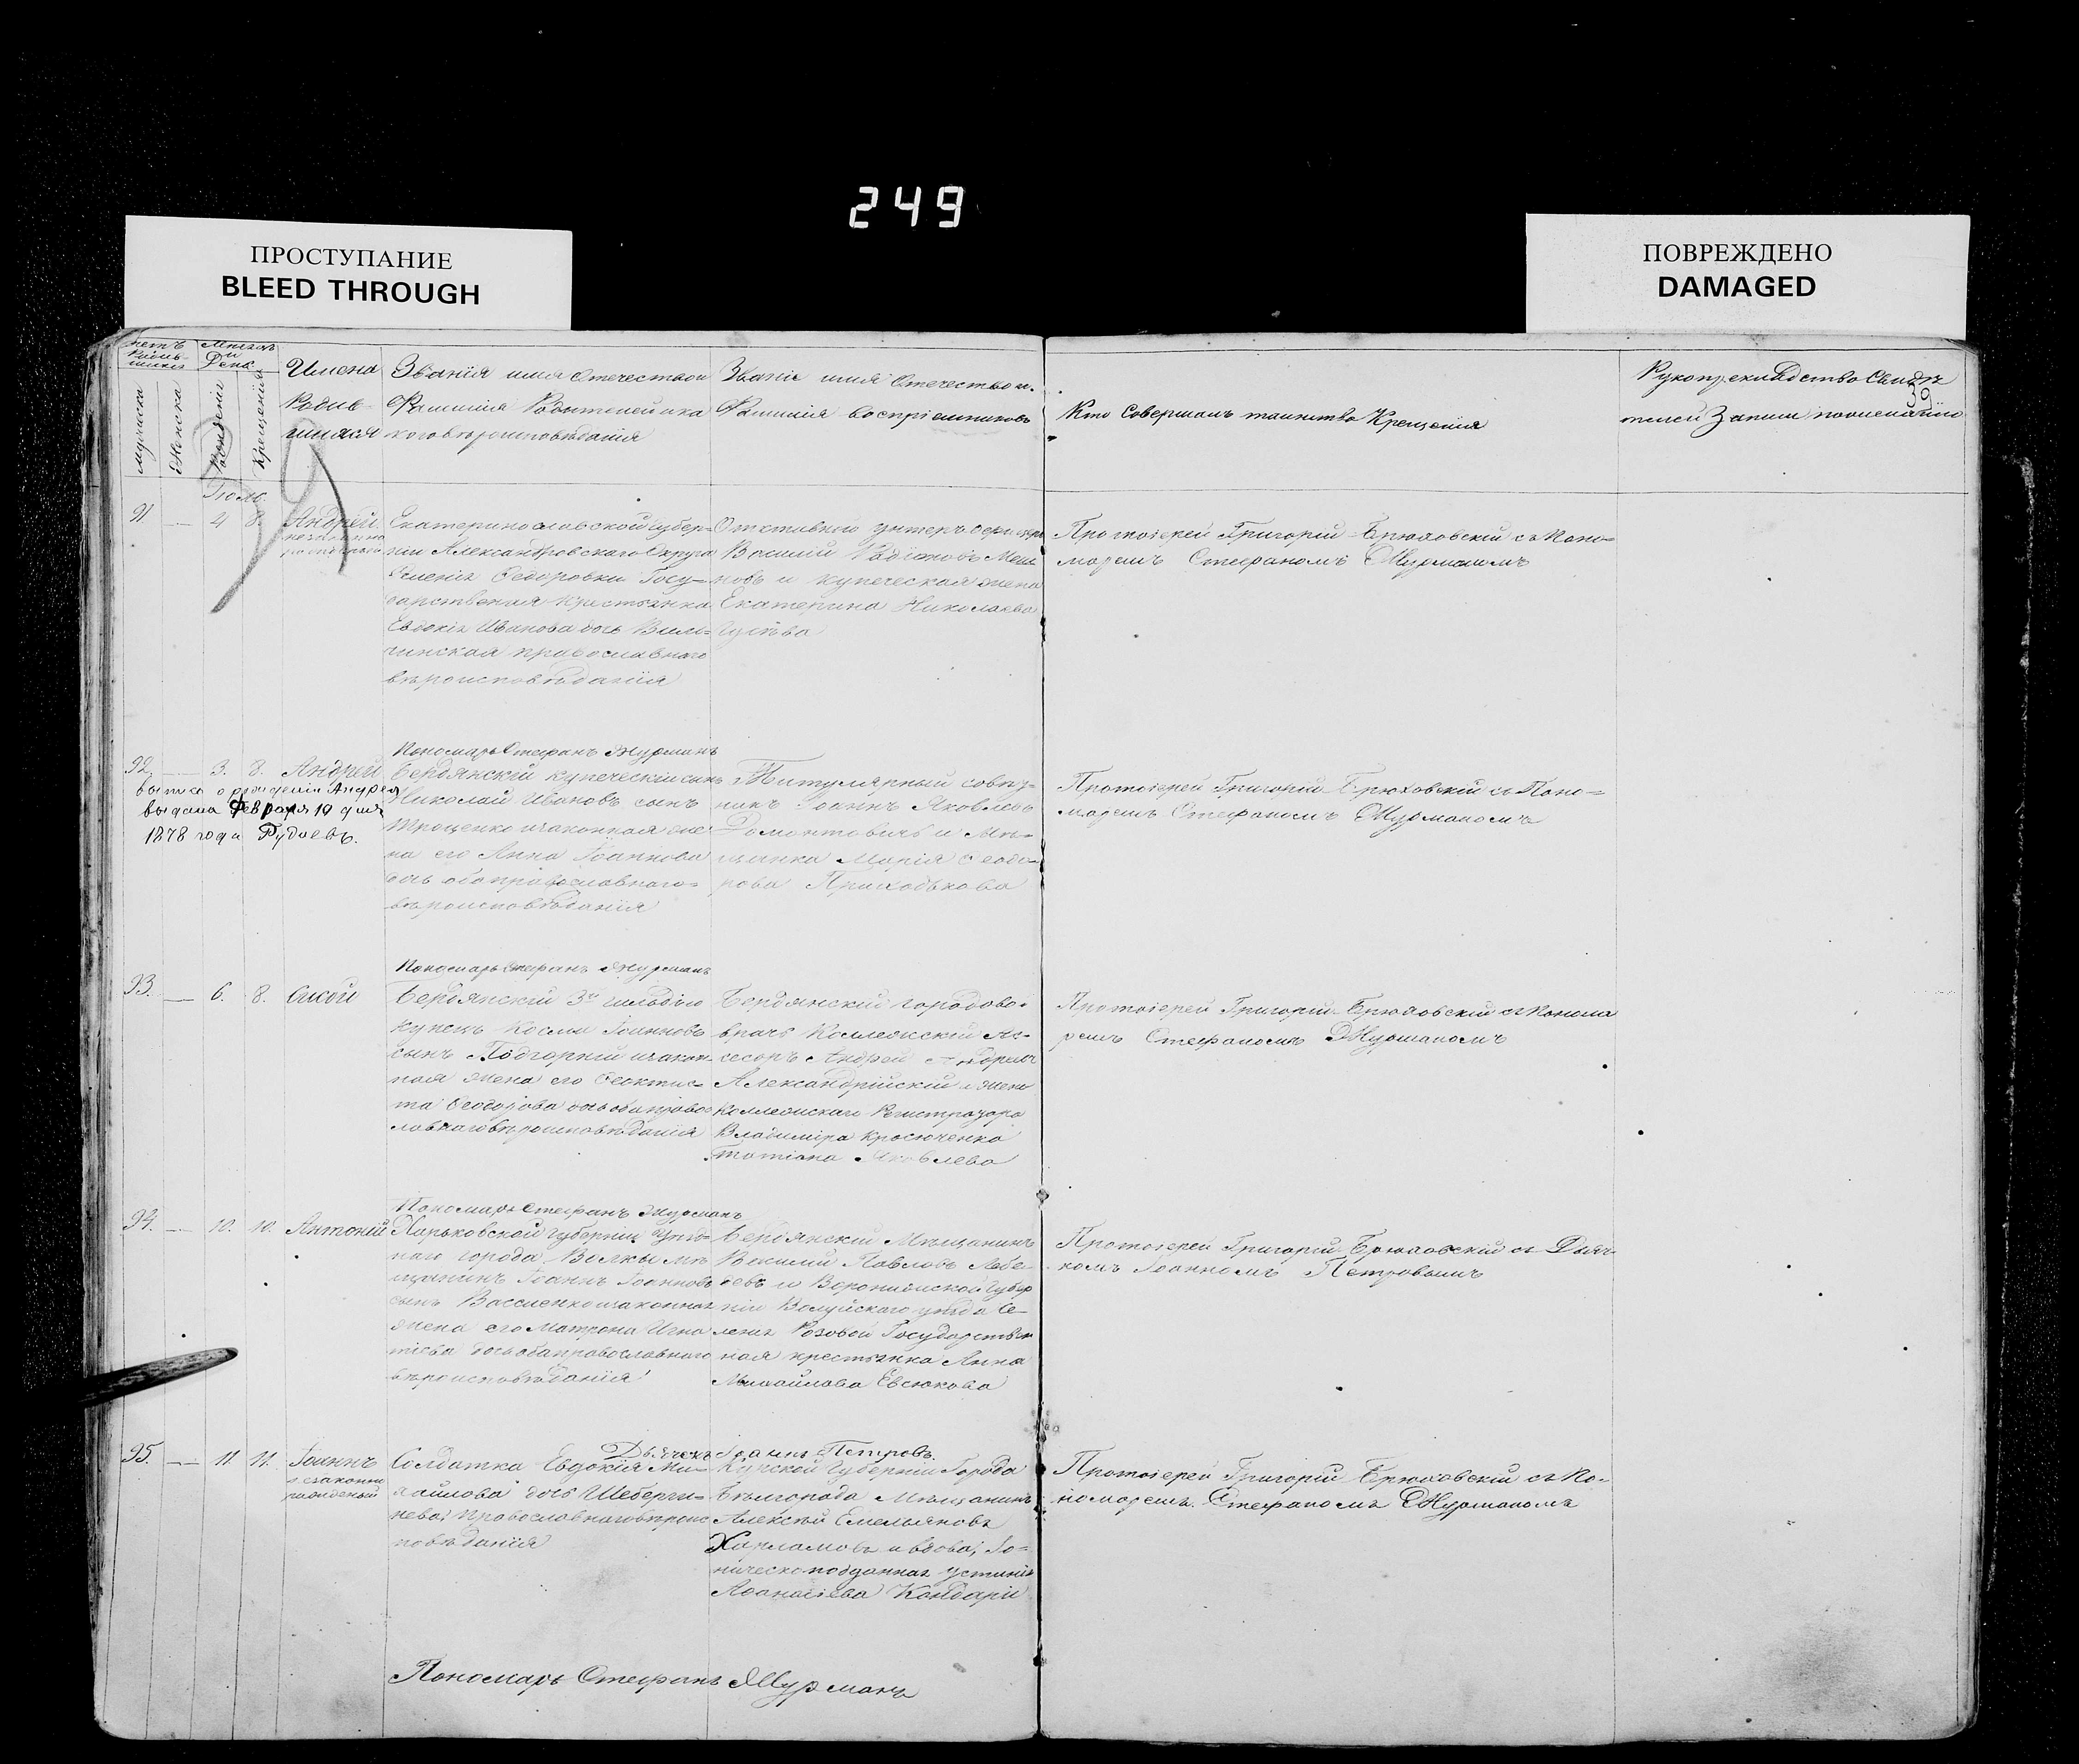 249
ПРОСТУПАНИЕ
BLEED THROUGH
ПОВРЕЖДЕНО
DAMAGED
Мужеска
Женска
Рожденія
Крещенія
Имена
Родив-
шихся
Званія имя Отечество и
Фамилія Родителей и ка
кого вѣроисповѣданія
Званіе имя Отечество и
Фамилія воспріемниковъ
Кто Совершалъ таинство Крещенія
Рукоприкладство Свидѣ
телей Записи по
39
91. — 4 8. Андрей
незаконно
рожденный
Екатеринославской губер-
ніи Александровскаго Округа
Селенія Федоровки Госу-
дарственая крестьянка
Евдокія Иванова дочь
православнаго
вѣроисповѣданія
Отставной унтеръ офицеръ
Василій
и купеческая жена
Екатерина Николаева
Протоіерей Григорій Брюховскій съ Поно-
маремъ Стефаномъ Журманомъ
Пономарь Стефанъ Журманъ
92. — 3. 8. Андрей
о рожденіи Андрея
выдана Февраля 19 дня
1878 года
Бердянскій купеческій сынъ
Николай Ивановъ сынъ
Троценко и законная же
на его Анна Іоаннова
дочь оба православнаго
вѣроисповѣданія
Титулярный совѣт-
никъ Іоаннъ Яковлевъ
Домонтовичъ и Мѣ-
щанка Марія Феодо-
рова Приходькова
Протоіерей Григорій Брюховскій съ Поно-
маремъ Стефаномъ Журманомъ
Пономарь Стефанъ Журманъ
93. — 6. 8.
Бердянскій 3й гильдіи
купецъ Косма Іоанновъ
сынъ Подгорный и закон-
ная жена его Феоктис-
та Феодорова дочь оба право
лавнаго вѣроисповѣданія
Бердянскій городовой
врачъ Коллежскій Ас-
сесоръ Андрей
Александрійскій и жена
Коллежскаго Регистратора
Владиміра
Татіана Яковлева
Протоіерей Григорій Брюховскій съ Понома
ремъ Стефаномъ Журманомъ
Пономарь Стефанъ Журманъ
94. — 10. 10. Антоній
Харьковской губерніи Уѣзд-
наго города Волкы мѣ
щанинъ Іоаннъ Іоанновъ
сынъ Василенко и законная
жена его Матрона Игна
тіева дочь оба православнаго
вѣроисповѣданія
Бердянскій Мѣщанинъ
Василій Павловъ Лебе-
девъ и Воронежской Губер
ніи Валуйскаго уѣзда Се-
ленія Розовой Государствен
ная крестьянка Анна
Михайлова Евсюкова
Протоіерей Григорій Брюховскій съ Дьяч-
комъ Іоанномъ Петровымъ
Дьячекъ Іоаннъ Петровъ
95. — 11. 11. Іоаннъ
незаконно
рожденый
Солдатка Евдокія Ми-
хайлова дочь Шеберги-
нева; Православнаго вѣроис
повѣданія
Курской Губерніи Города
Бѣлгорода Мѣщанинъ
Алексѣй Емельяновъ
Харламовъ и вдова; Іо-
ническоподданная Устинія
Афанасіева Кондари
Протоіерей Григорій Брюховскій съ По-
номаремъ Стефаномъ Журманомъ
Пономарь Стефанъ Журманъ